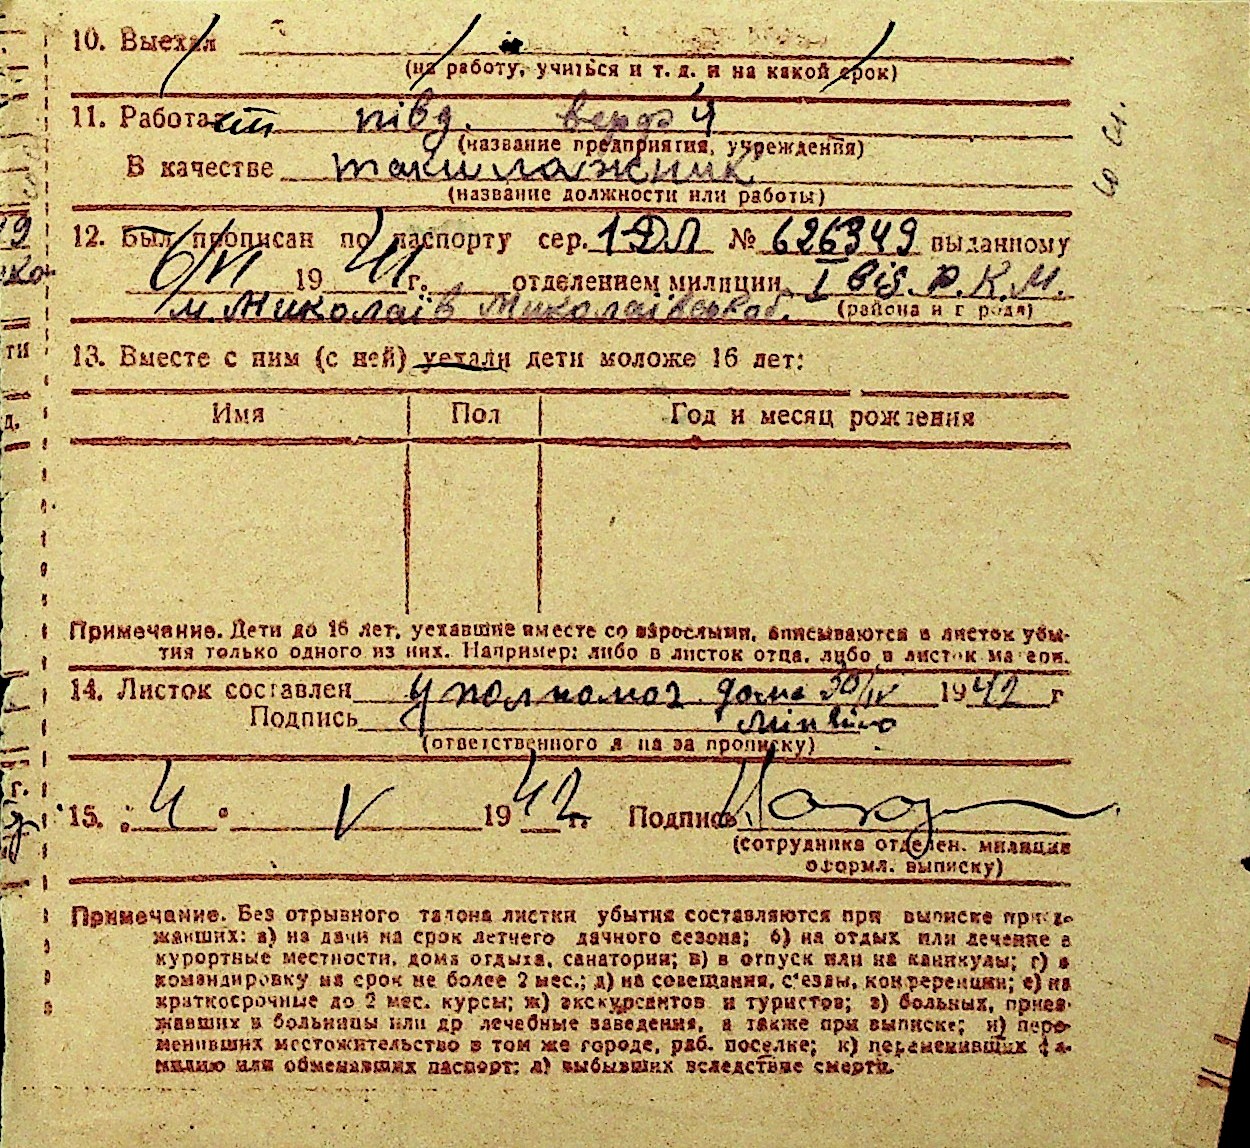 10. Выехал
(на работу, учиться и т. д. и на какой срок)
11. Работает півд. верфʼя
(название предприятия, учреждения)
В качестве такилажник
(название должности или работы)
12. Был прописан по паспорту сер. 1 ДЛ № 626349 выданному
6/VI 1941 г. отделением милиции I від. Р.К.М.
м. Миколаїв Миколаївськ об. (района и города)
13. Вместе с ним (с ней) уехали дети моложе 16 лет:
Имя Пол Год и месяц рождения
Примечание. Дети до 16 лет, уехавшие вместе со взрослыми, вписываются в листок убы-
тия только одного из них. Например: либо в листок отца, либо в листок матери.
14. Листок составлен уполномоч дома 30/IV 1942 г
Подпись
(ответственного л на за прописку)
15. „4 " V 1942 г. Подпись
(сотрудника отделен. милиции
оформл. выписку)
Примечание. Без отрывного талона листки убытия составляются при выписке приез-
жавших: а) на дачи на срок летнего дачного сезона; б) на отдых или лечение в
курортные местности, дома отдыха, санатории; в) в отпуск или на каникулы; г) в
командировку на срок не более 2 мес.; д) на совещания, с'езды, конференции; е) на
краткосрочные до 2 мес. курсы; ж) экскурсантов и туристов; з) больных, приез-
жавших в больницы или др лечебные заведения, а также при выписке; и) пере-
менивших местожительство в том же городе, раб. поселке; к) переменивших фа-
милию или обменявших паспорт; л) выбывших вследствие смерти.